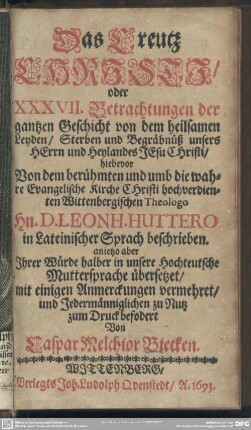 Das Creutz
CHRISTI/
oder
XXXVII. Betrachtungen der
gantzen Geschicht von dem heilsamen
Leyden/ Sterben und Begräbnüß unsers
HErrn und Heylandes JEsu CHristi/
hiebevor
Von dem berühmten und umb die wah-
re Evangelische Kirche CHristi hochverdien-
ten Wittenbergischen Theologo
Hn. D. LEONH. HUTTERO
in Lateinischer Sprach beschrieben.
anietzo aber
Ihrer Würde halber in unsere Hochteutsche
Muttersprache übersetzet/
mit einigen Anmerckungen vermehret/
und Jedermänniglichen zu Nutz
zum Druck befodert
Von
Caspar Melchior Biecken.
WITTENBERG/
Verlegts Joh. Ludolph Qvenstedt/ A. 1693.